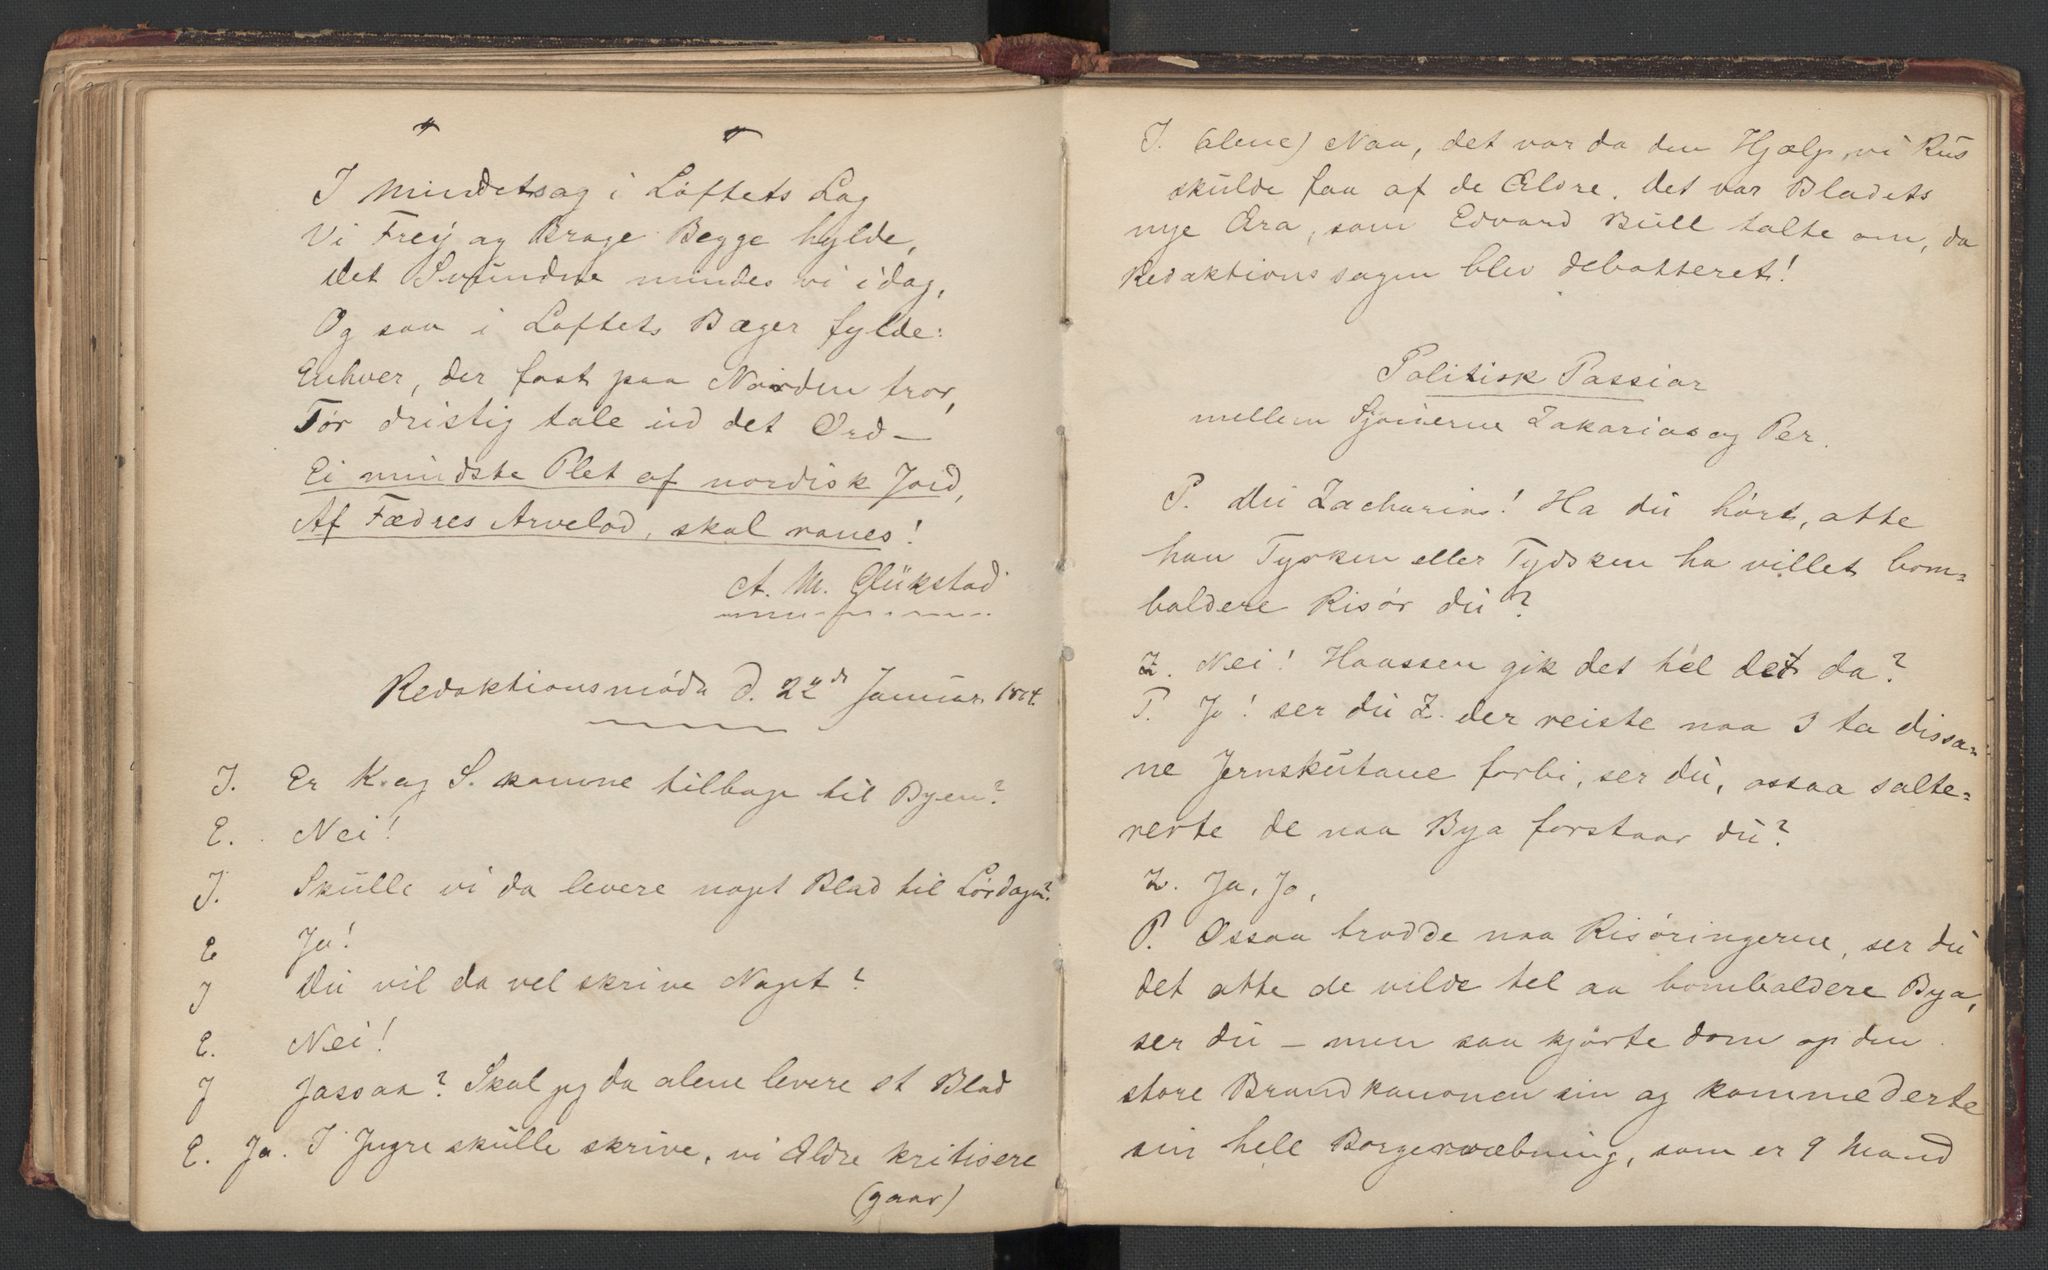 I Mindets og i Løftets Lag
Vi Frey og Brage Begge hylde,
Det Svundne mindes vi idag,
Og saa i Løftets Bæger fylde:
Enhver, der fast paa Norden tror,
Tør dristig tale ud det Ord –
Ei mindste Plet af nordisk Jord,
Af Fædres Arvelod, skal ranes!
A. M. Glükstad
Redaktionsmøde d. 22de Januar 1864.
I. Er K. og S. komne tilbage til Byen?
E. Nei!
I. Skulle vi da levere noget Blad til Lørdagen?
E Ja!
I Du vil da vel skrive Noget?
E. Nei!
I Jassaa? Skal jeg da alene levere et Blad
E. Ja. I Yngre skulle skrive, vi Ældre kritisere
(gaar)
I. (alene) Naa, det var da den Hjælp, vi Rus
skulde faa af de Ældre. Det var Bladets
nye Æra, som Edvard Bull talte om, da
Redaktionssagen blev debatteret!
Politisk Passiar
mellem Sjouerne Zakarias og Per.
P. Du Zacharias! Ha du hørt, atte
han Tysken eller Tydsken ha villet bom=
baldere Risør du?
Z. Nei! Haassen gik det tel det da?
P. Jo! ser du Z. der reiste naa 3 ta dissa=
ne Jernskutane forbi, ser du, ossaa salte=
rerte de naa Bya forstaar du?
Z. Ja, Ja,
P. Ossaa trodde naa Risøringerne, ser du
det atte de vilde tel aa bombaldere Bya,
ser du – men saa kjørte dom op den
store Brandkanonen sin og kommederte
sin hele Borgervæbning, som er 9 Mand